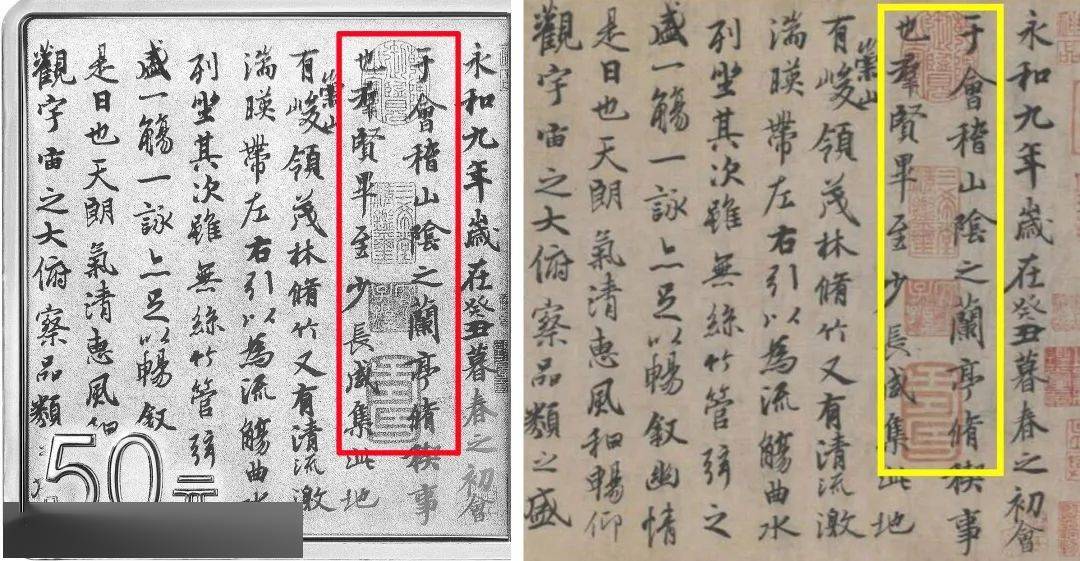 永和九年歲在癸丑暮春之初會
于會稽山陰之蘭亭脩稧事
也羣賢畢至少長咸集此地
崇山
有峻領茂林脩竹又有清流激
湍暎帶左右引以為流觴曲水
列坐其次雖無絲竹管弦
盛一觴一詠亦足以暢叙
是日也天朗氣清惠風和
觀宇宙之大俯察品類
50元
永和九年歲在癸丑暮春之初會
于會稽山陰之蘭亭脩稧事
也羣賢畢至少長咸集此地
崇山
有峻領茂林脩竹又有清流激
湍暎帶左右引以為流觴曲水
列坐其次雖無絲竹管弦之
盛一觴一詠亦足以暢叙幽情
是日也天朗氣清惠風和暢仰
觀宇宙之大俯察品類之盛